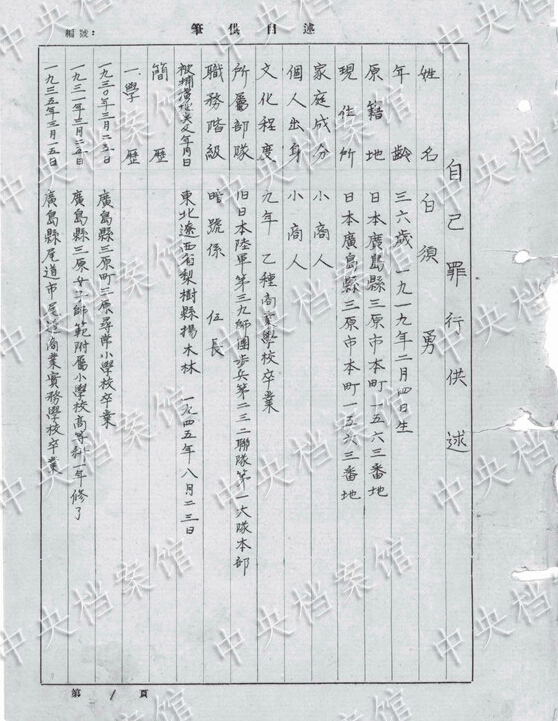 述自供筆
編號：
自己罪行供述
姓名 白須 勇
年齡 三六歲 一九一九年二月四日生
原籍地 日本廣島縣三原市本町一五六三番地
現住所 日本廣島縣三原市本町一五六三番地
家庭成分 小商人
個人出身 小商人
文化程度 九年 乙種商業學校卒業
所屬部隊 旧日本陸軍第三九師團步兵第二三二聯隊第一大隊本部
職務階級 暗號係 伍長
被捕 年月日 東北遼西省梨樹縣楊木林 一九四五年八月二三日
簡歷
一.學歷
一九三〇年三月二五日 廣島縣三原町三原尋常小學校卒業
一九三一年三月二五日 廣島縣三原女子師範附屬小學校高等科一年修了
一九三五年三月一五日 廣島縣尾道市尾道商業實務學校卒業
第 1 頁
中央档案馆